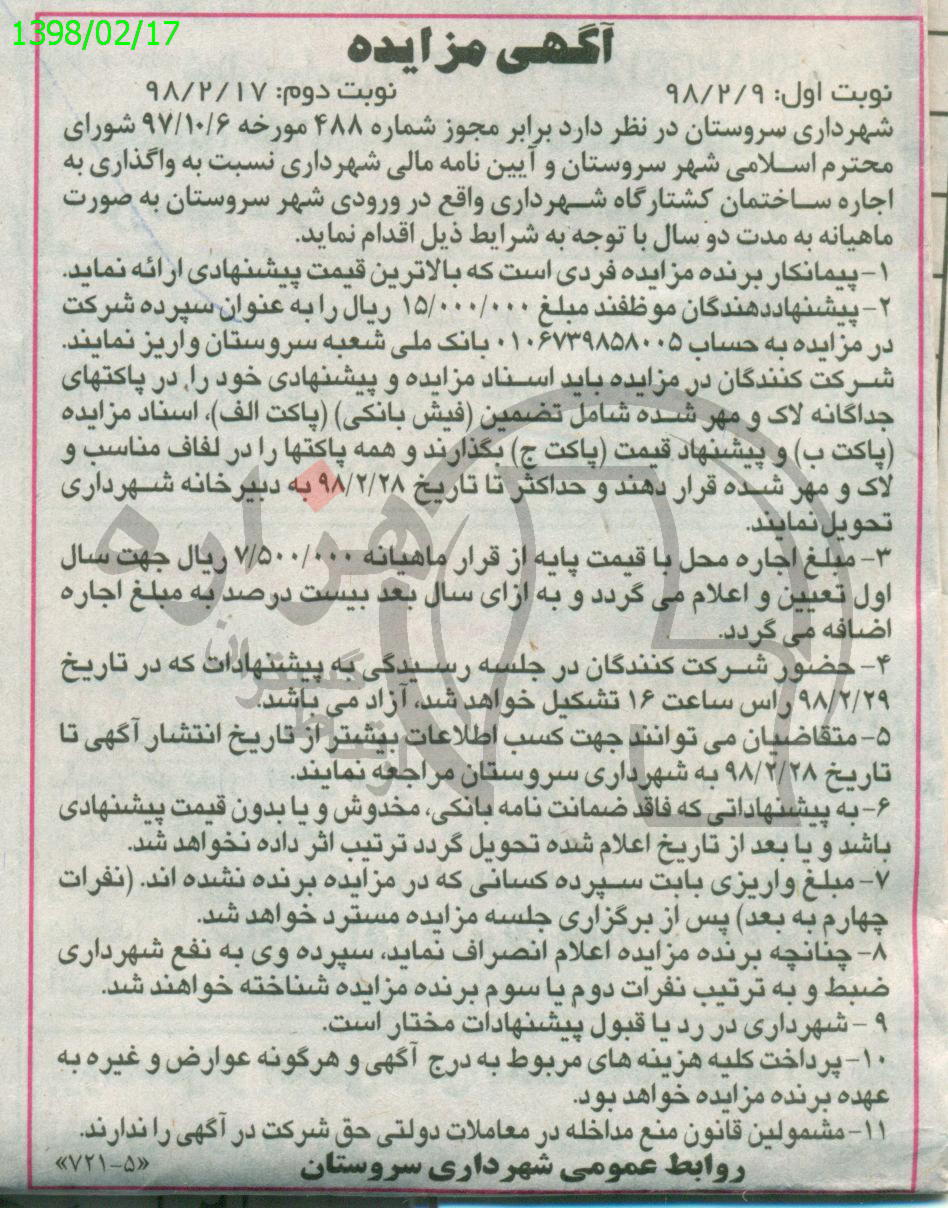 1398/02/17
آگهی مزایده
نوبت اول: ۹۸/۲/۹ نوبت دوم: ۹۸/۲/۱۷
شهرداری سروستان در نظر دارد برابر مجوز شماره ۴۸۸ مورخه ۹۷/۱۰/۶ شورای
محترم اسلامی شهر سروستان و آیین نامه مالی شهرداری نسبت به واگذاری به
اجاره ساختمان کشتارگاه شهرداری واقع در ورودی شهر سروستان به صورت
ماهیانه به مدت دو سال با توجه به شرایط ذیل اقدام نماید.
۱- پیمانکار برنده مزایده فردی است که بالاترین قیمت پیشنهادی ارائه نماید.
۲- پیشنهاددهندگان موظفند مبلغ ۱۵/۰۰۰/۰۰۰ ریال را به عنوان سپرده شرکت
در مزایده به حساب ۰۱۰۶۷۳۹۸۵۸۰۰۵ بانک ملی شعبه سروستان واریز نمایند.
شرکت کنندگان در مزایده باید اسناد مزایده و پیشنهادی خود را، در پاکتهای
جداگانه لاک و مهر شده شامل تضمین (فیش بانکی) (پاکت الف)، اسناد مزایده
(پاکت ب) و پیشنهاد قیمت (پاکت ج) بگذارند و همه پاکتها را در لفاف مناسب و
لاک و مهر شده قرار دهند و حداکثر تا تاریخ ۹۸/۲/۲۸ به دبیرخانه شهرداری
تحویل نمایند.
۳- مبلغ اجاره محل با قیمت پایه از قرار ماهیانه ۷/۵۰۰/۰۰۰ ریال جهت سال
اول تعیین و اعلام می گردد و به ازای سال بعد بیست درصد به مبلغ اجاره
اضافه می گردد.
۴- حضور شرکت کنندگان در جلسه رسیدگی به پیشنهادات که در تاریخ
۹۸/۲/۲۹ راس ساعت ۱۶ تشکیل خواهد شد، آزاد می باشد.
۵- متقاضیان می توانند جهت کسب اطلاعات بیشتر از تاریخ انتشار آگهی تا
تاریخ ۹۸/۲/۲۸ به شهرداری سروستان مراجعه نمایند.
۶- به پیشنهاداتی که فاقد ضمانت نامه بانکی، مخدوش و یا بدون قیمت پیشنهادی
باشد و یا بعد از تاریخ اعلام شده تحویل گردد ترتیب اثر داده نخواهد شد.
۷- مبلغ واریزی بابت سپرده کسانی که در مزایده برنده نشده اند. (نفرات
چهارم به بعد) پس از برگزاری جلسه مزایده مسترد خواهد شد.
۸- چنانچه برنده مزایده اعلام انصراف نماید، سپرده وی به نفع شهرداری
ضبط و به ترتیب نفرات دوم یا سوم برنده مزایده شناخته خواهند شد.
۹ - شهرداری در رد یا قبول پیشنهادات مختار است.
۱۰- پرداخت کلیه هزینه های مربوط به درج آگهی و هرگونه عوارض و غیره به
عهده برنده مزایده خواهد بود.
۱۱- مشمولین قانون منع مداخله در معاملات دولتی حق شرکت در آگهی را ندارند.
روابط عمومی شهرداری سروستان «۵-۷۲۱»
هزاره